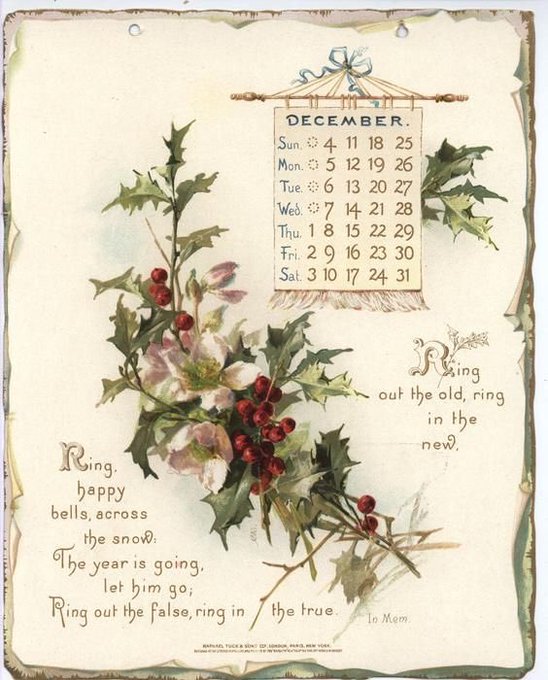 DECEMBER.
Sun. 4 11 18 25
Mon. 5 12 19 26
Tue. 6 13 20 27
Wed. 7 14 21 28
Thu. 1 8 15 22 29
Fri. 2 9 16 23 30
Sat. 3 10 17 24 31
Ring
out the old, ring
in the
new,
Ring,
happy
bells, across
the snow:
The year is going,
let him go;
Ring out the false, ring in the true.
In Mem.
RAPHAEL TUCK & SONS LTD. LONDON, PARIS, NEW YORK.